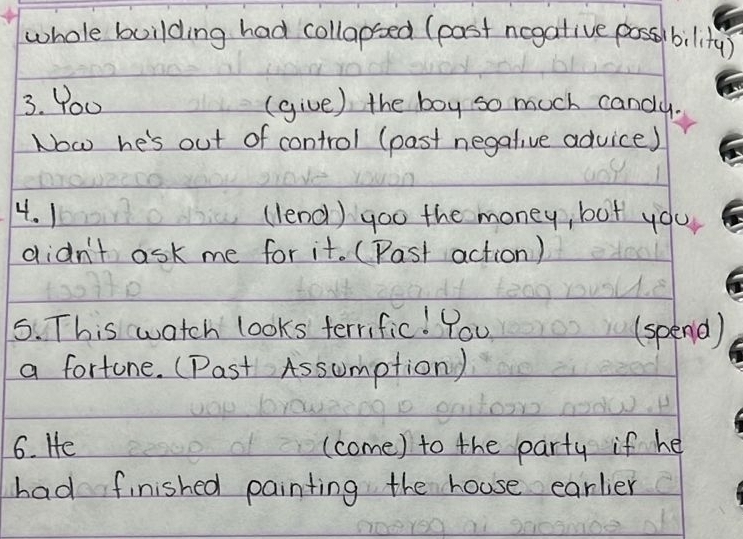 whole building had collapsed (past negative possibility)
3. You (give) the boy so much candy.
Now he's out of control (past negative advice)
4. I (lend) you the money, but you
didn't ask me for it. (Past action)
5. This watch looks terrific! You (spend)
a fortune. (Past Assumption)
6. He (come) to the party if he
had finished painting the house earlier